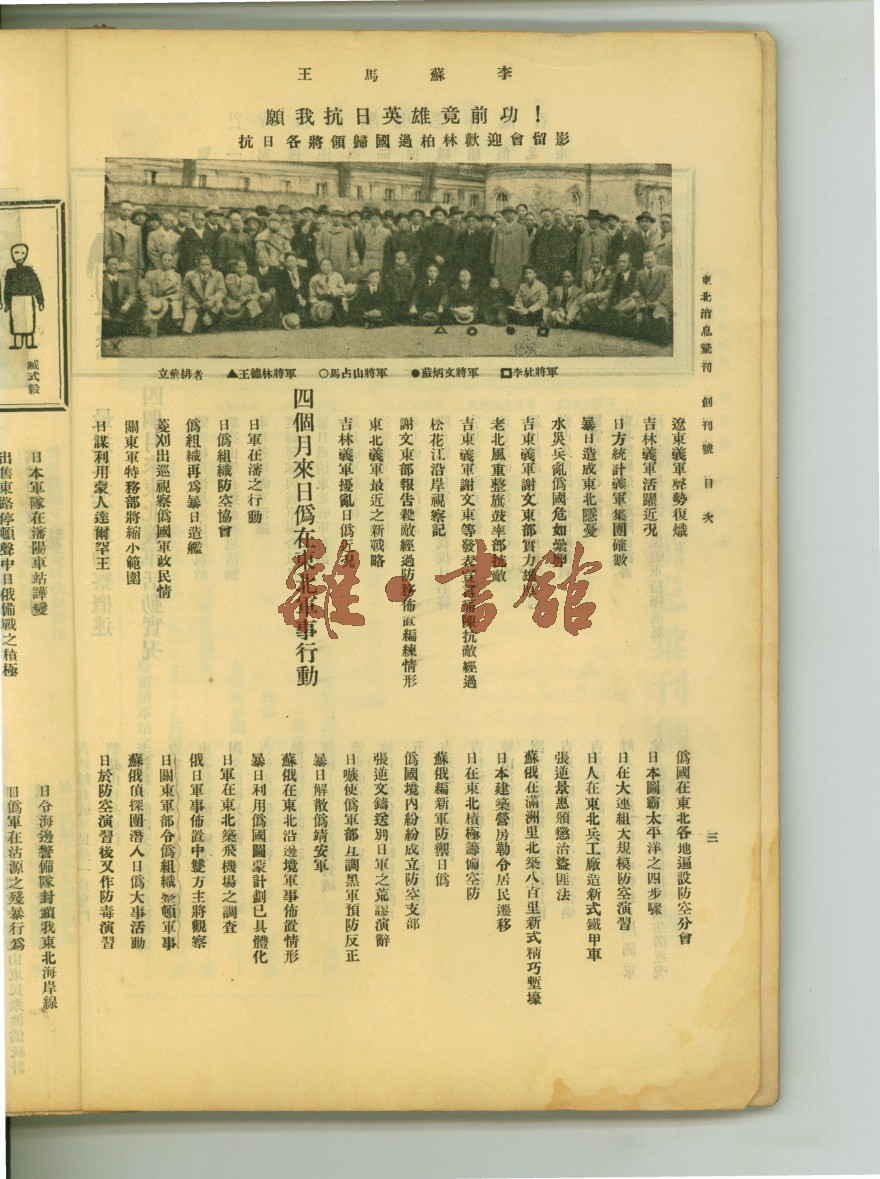 李蘇馬王
願我抗日英雄竟前功！
抗日各將領歸國過柏林歡迎會留影
立前排者 ▲王德林將軍 ○馬占山將軍 ●蘇炳文將軍 □李杜將軍
東北消息彙刊 創刊號 目次
三
遼東義軍聲勢復熾
吉林義軍活躍近況
日方統計義軍集團確數
暴日造成東北隱憂
水災兵亂僞國危如纍卵
吉東義軍謝文東部實力雄厚
老北風重整旗鼓率部抗敵
吉東義軍謝文東等發表宣言痛陳抗敵經過
松花江沿岸視察記
謝文東部報告殺敵經過防務佈置編練情形
東北義軍最近之新戰略
吉林義軍擾亂日僞近況
四個月來日僞在東北軍事行動
日軍在瀋之行動
日僞組織防空協會
僞組織再爲暴日造艦
菱刈出巡視察僞國軍政民情
關東軍特務部將縮小範圍
日謀利用蒙人達爾罕王
日本軍隊在瀋陽車站譁變
出售東路停頓聲中日俄備戰之積極
僞國在東北各地遍設防空分會
日本圖霸太平洋之四步驟
日在大連組大規模防空演習
日人在東北兵工廠造新式鐵甲車
張逆景惠頒懲治盜匪法
蘇俄在滿洲里北築八百里新式精巧塹壕
日本建築營房勒令居民遷移
日在東北積極籌備空防
蘇俄編新軍防禦日僞
僞國境內紛紛成立防空支部
張逆文鑄送別日軍之荒謬演辭
日嗾使僞軍部互調黑軍預防反正
暴日解散僞靖安軍
蘇俄在東北沿邊境軍事佈置情形
暴日利用僞國圖蒙計劃已具體化
日軍在東北築飛機場之調查
俄日軍事佈置中雙方主將觀察
日關東軍部令僞組織整頓軍事
蘇俄偵探團潛入日僞大事活動
日於防空演習後又作防毒演習
日令海邊警備隊封鎖我東北海岸線
日僞軍在沽源之殘暴行爲
臧式毅
雜·書館